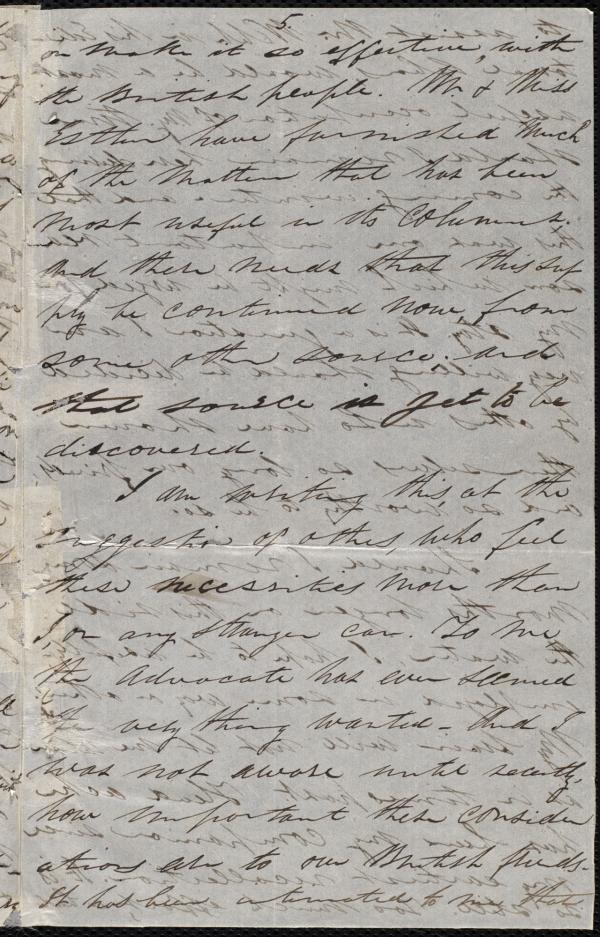 5
or make it so effective, with
the British people. Mr. & Miss
Estlin have furnished much
of the matter that has been
most useful in its columns.
And there needs that this sup
ply be continued now, from
some other source; and
that source is yet to be
discovered.
I am writing this at the
suggestion of others, who feel
these necessities more than
I, or any stranger can. To me
the Advocate has ever seemed
the very thing wanted - And I
was not aware until recently,
how important these consider
ations are to our British friends.
It has been intimated to me that